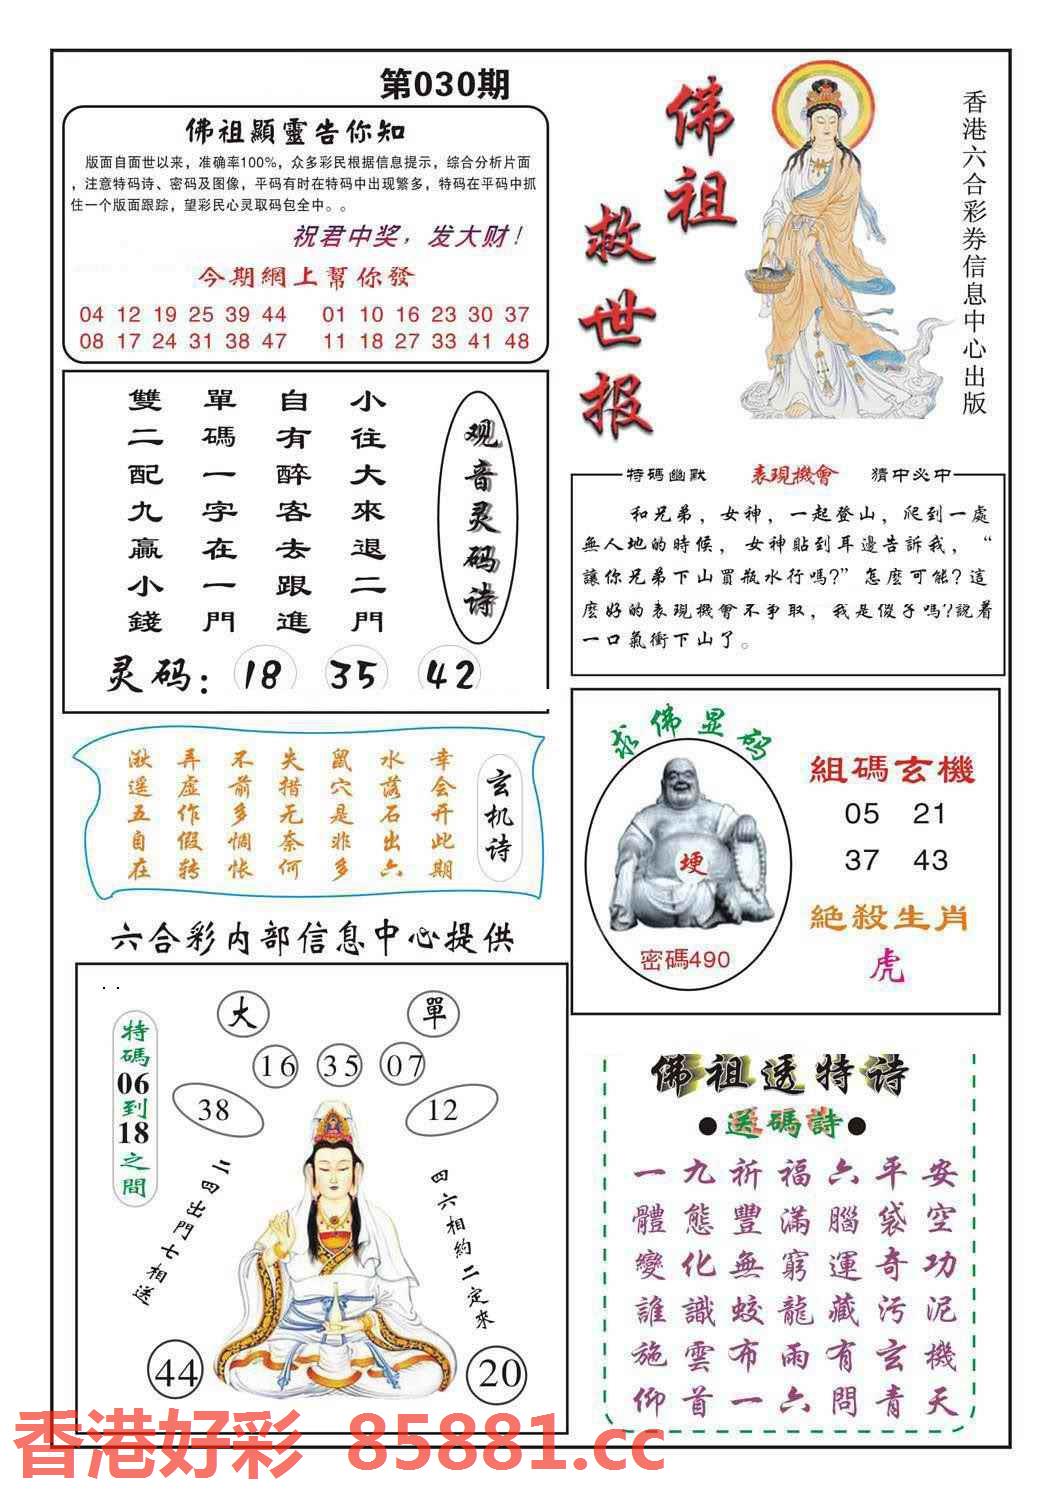 第030期
佛祖顯靈告你知
版面自面世以来，准确率100%，众多彩民根据信息提示，综合分析片面
，注意特码诗、密码及图像，平码有时在特码中出现繁多，特码在平码中抓
住一个版面跟踪，望彩民心灵取码包全中。。
祝君中奖，发大财！
今期網上幫你發
04 12 19 25 39 44 01 10 16 23 30 37
08 17 24 31 38 47 11 18 27 33 41 48
佛祖
救世报
香港六合彩券信息中心出版
观音灵码诗
小往大來退二門
自有醉客去跟進
單碼一字在一門
雙二配九贏小錢
灵码：18 35 42
特碼幽默 表現機會 猜中必中
和兄弟，女神，一起登山，爬到一處
無人地的時候，女神貼到耳邊告訴我，“
讓你兄弟下山買瓶水行嗎?”怎麼可能?這
麼好的表現機會不爭取，我是傻子嗎?說着
一口氣衝下山了。
玄机诗
幸会开此期
水落石出六
鼠穴是非多
失措无奈何
不前多惆怅
弄虚作假转
湫遥五自在
求佛显码
埂
密碼490
組碼玄機
05 21
37 43
絕殺生肖
虎
六合彩内部信息中心提供
特碼06到18之間
大 單
16 35 07
38 12
二四出門七相送
四六相約二定來
44 20
佛祖透特诗
●送碼詩●
一九祈福六平安
體態豐滿腦袋空
變化無窮運奇功
誰識蛟龍藏污泥
施雲布雨有玄機
仰首一六問青天
香港好彩 85881.cc